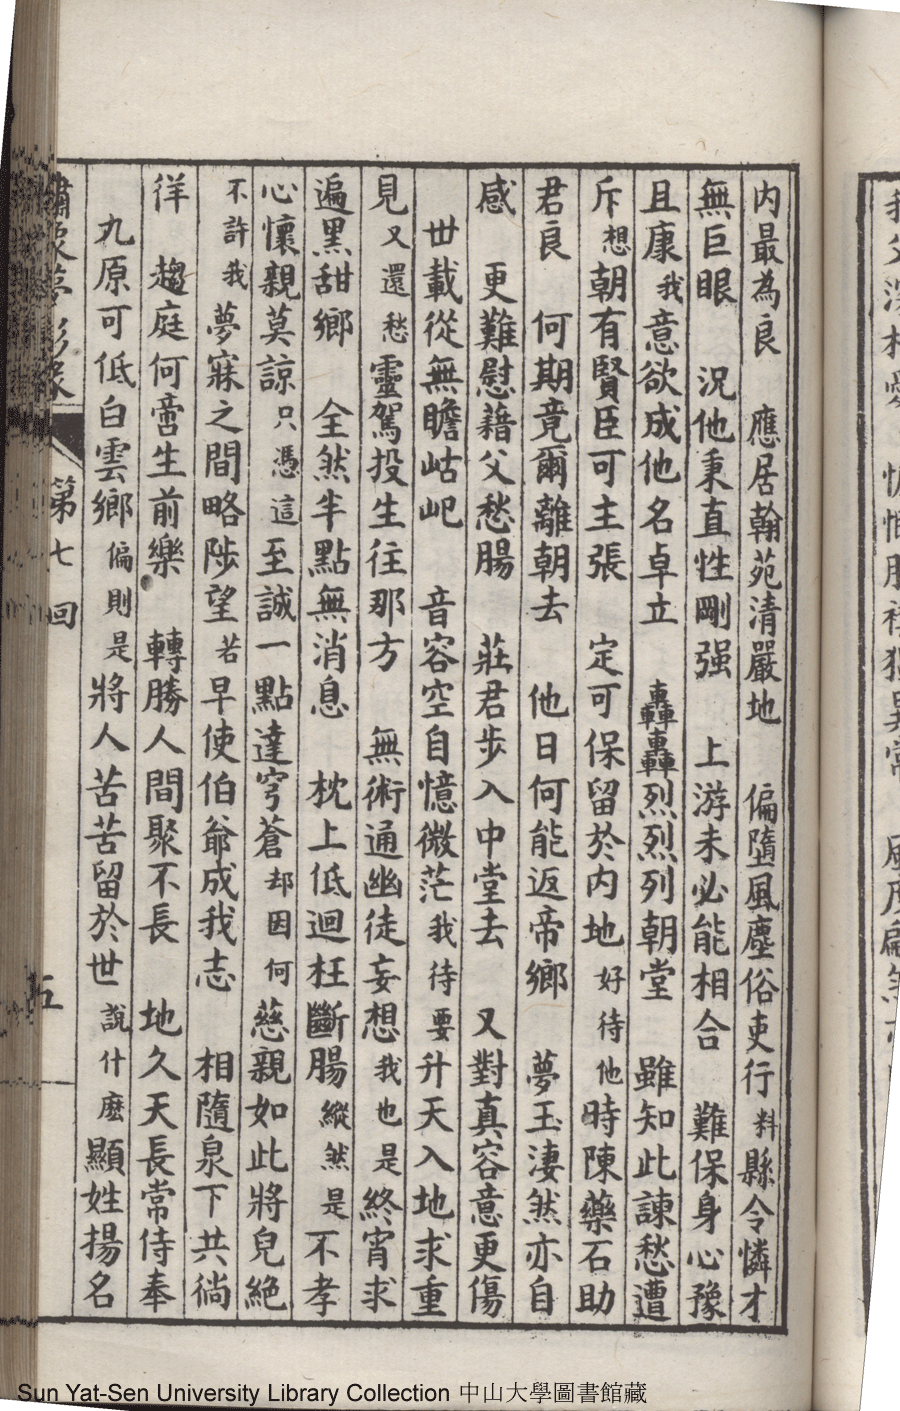 内最為良　應居翰苑清嚴地　偏墮風塵俗吏行料縣令憐才
無巨眼　況他秉直性剛强　上游未必能相合　難保身心豫
且康我意欲成他名卓立　轟轟烈烈列朝堂　雖知此諫愁遭
斥想朝有賢臣可主張　定可保留於内地好待他時陳藥石助
君良　何期竟爾離朝去　他日何能返帝鄉　夢玉淒然亦自
感　更難慰藉父愁腸　莊君步入中堂去　又對真容意更傷
世載從無瞻岵屺　音容空自憶微茫我待要升天入地求重
見又還愁靈駕投生往那方　無術通幽徒妄想我也是終宵求
遍黑甜鄉　全然半點無消息　枕上低迴枉斷腸縱然是不孝
心懷親莫諒只憑這至誠一點達穹蒼却因何慈親如此將兒絕
不許我夢寐之間略陟望若早使伯爺成我志　相隨泉下共徜
徉　趨庭何啻生前樂　轉勝人間聚不長　地久天長常侍奉
九原可低白雲鄉偏則是將人苦苦留於世說什麽顯姓揚名
繡像夢影緣　第七回　五
Sun Yat-Sen University Library Collection 中山大學圖書館藏